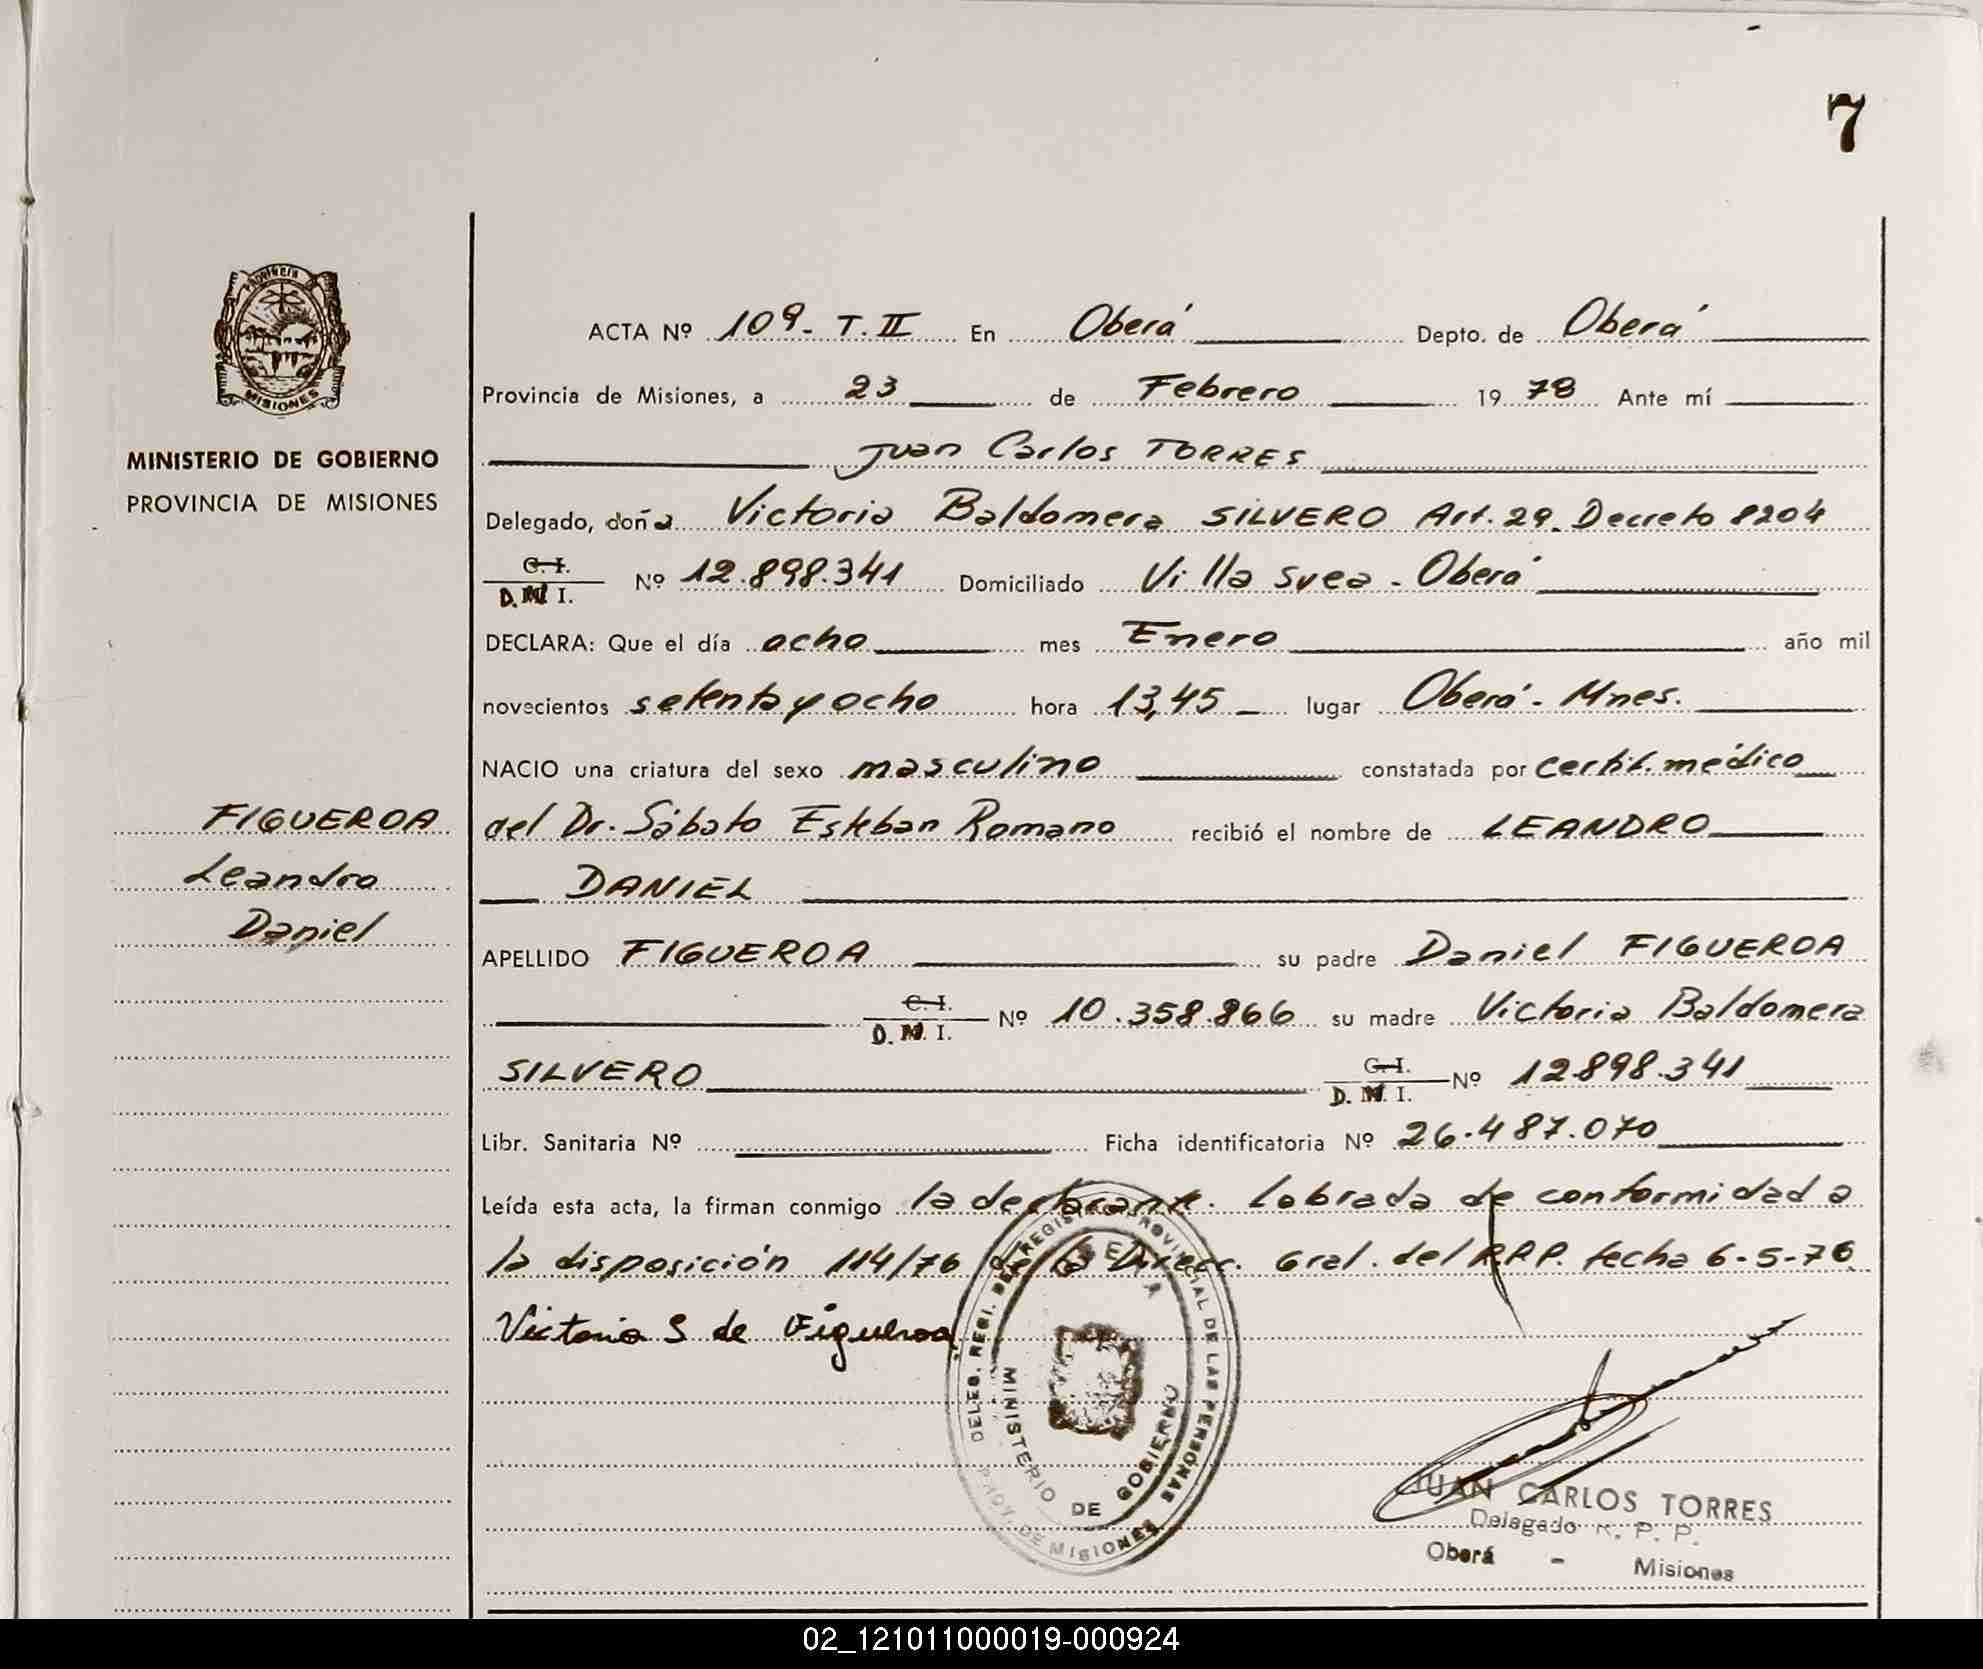 7
Provincia
MISIONES
MINISTERIO DE GOBIERNO
PROVINCIA DE MISIONES
ACTA Nº 109- T. II En Oberá Depto. de Oberá
Provincia de Misiones, a 23 de Febrero 1978 Ante mí
Juan Carlos TORRES
Delegado, doña Victoria Baldomera SILVERO Art. 29. Decreto 8204
C. I.
D. N. I. Nº 12.898.341 Domiciliado Villa Svea - Oberá
DECLARA: Que el día ocho mes Enero año mil
novecientos setenta y ocho hora 13,45 lugar Oberá - Mnes.
NACIO una criatura del sexo masculino constatada por certif. médico
del Dr. Sábato Esteban Romano recibió el nombre de LEANDRO
DANIEL
FIGUEROA
Leandro
Daniel
APELLIDO FIGUEROA su padre Daniel FIGUEROA
C. I.
D. N. I. Nº 10.358.866 su madre Victoria Baldomera
SILVERO C. I.
D. N. I. Nº 12.898.341
Libr. Sanitaria Nº Ficha identificatoria Nº 26.487.070
Leída esta acta, la firman conmigo la declarante. Labrada de conformidad a
la disposición 114/76 de la Direcc. Gral. del R.P.P. fecha 6-5-76
Victoria S de Figueroa
MINISTERIO DE GOBIERNO
PROV. DE MISIONES
JUAN CARLOS TORRES
Delegado R. P. P.
Oberá - Misiones
02_121011000019-000924